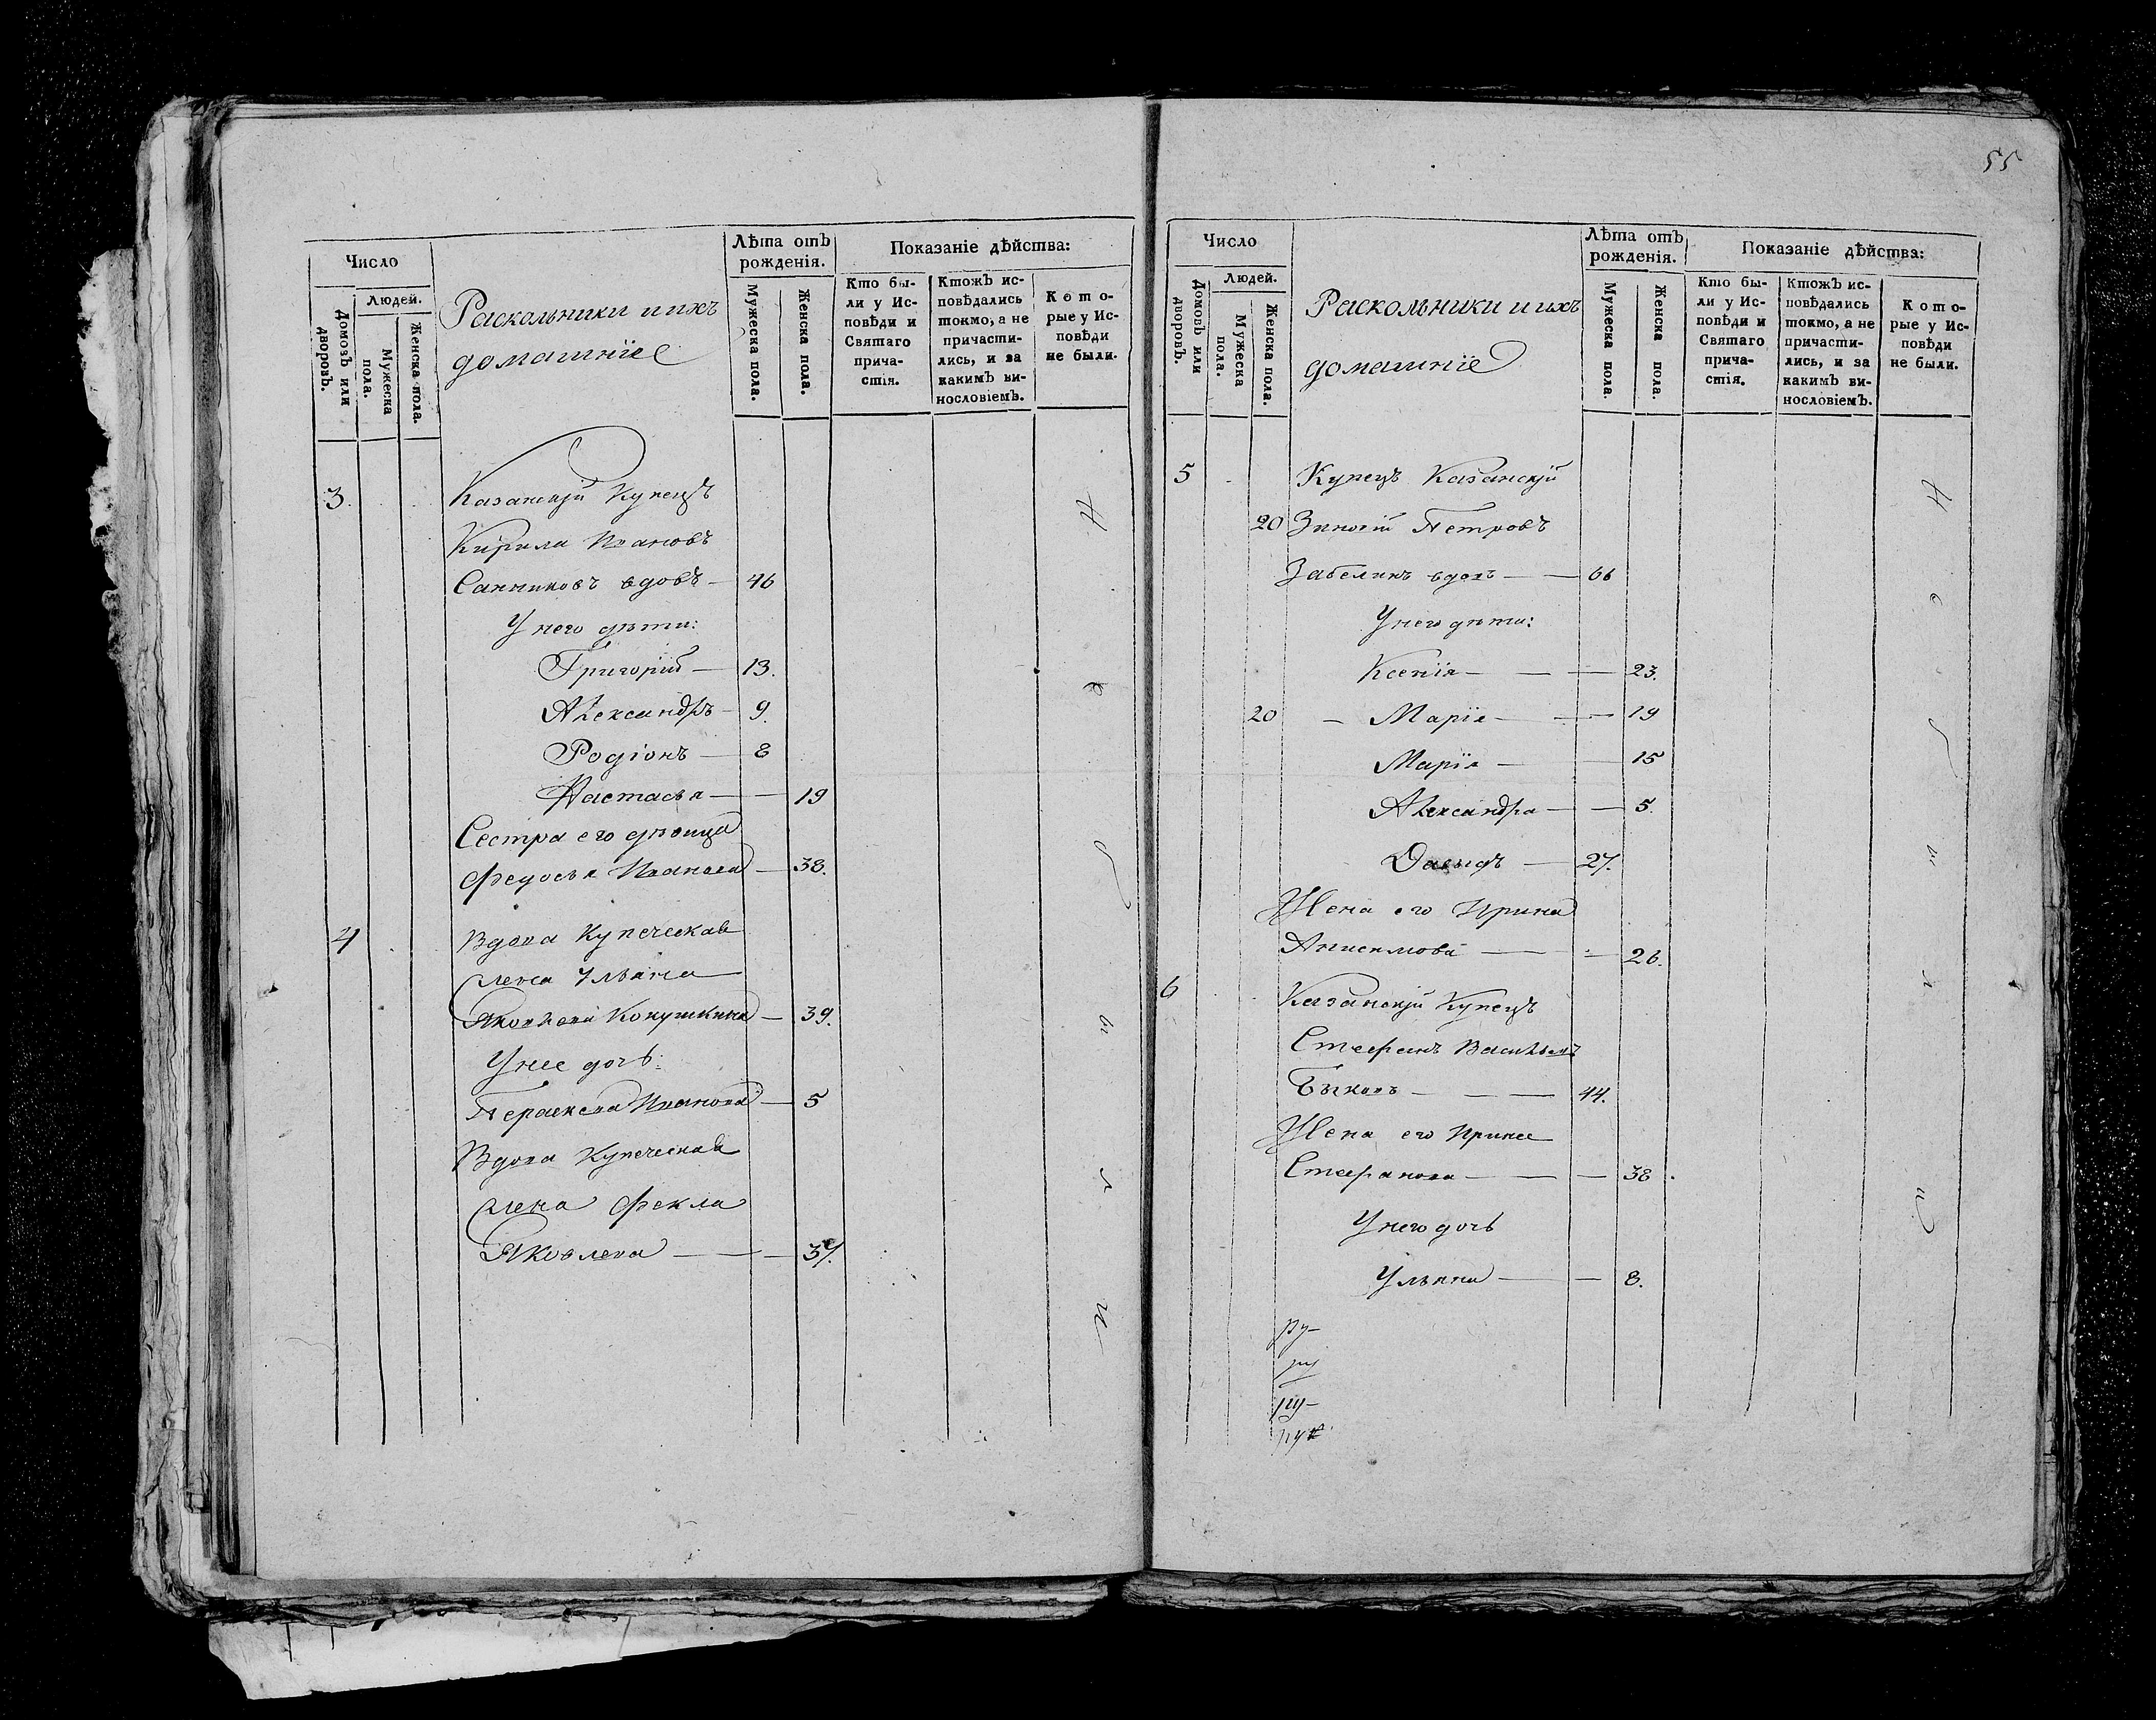 Число
Домовъ или дворовъ.
Людей.
Мужеска пола.
Женска пола.
Раскольники и ихъ
домашніе
Лѣта отъ
рожденія.
Мужеска пола.
Женска пола.
Показаніе дѣйства:
Кто бы-
ли у Ис-
повѣди и
Святаго
прича-
стія.
Ктожъ ис-
повѣдались
токмо, а не
причасти-
лись, и за
какимъ ви-
нословіемъ.
Кото-
рые у Ис-
повѣди
не были.
3. Казанскій Купецъ
Кирила Ивановъ
Санниковъ вдовъ — 46
У него дѣти:
Григорій — 13.
Александръ — 9.
Родіонъ — 8
Настасья — 19
Сестра его дѣвица
Федосья Иванова — 38.
4 Вдова Купеческая
жена Ульяна
Яковлева Кокушкина — 39.
У нее дочь:
Параскева Иванова — 5
Вдова Купеческая
жена Фекла
Яковлева — 37.
Н е б ы л и
55
Число
Домовъ или дворовъ.
Людей.
Мужеска пола.
Женска пола.
Раскольники и ихъ
домашніе
Лѣта отъ
рожденія.
Мужеска пола.
Женска пола.
Показаніе дѣйства:
Кто бы-
ли у Ис-
повѣди и
Святаго
прича-
стія.
Ктожъ ис-
повѣдались
токмо, а не
причасти-
лись, и за
какимъ ви-
нословіемъ.
Кото-
рые у Ис-
повѣди
не были.
5 Купецъ Казанскій
20 Зиновій Петровъ
Забелинъ вдовъ — 66
У него дѣти:
Ксенія — 23.
20 — Марія — 19
Марія — 15
Александра — 5.
Давыдъ — 27.
Жена его Ирина
Анисимова — 26.
6 Казанскій Купецъ
Стефанъ Васильевъ
Быковъ — 44.
Жена его Ирина
Стефанова — 38.
У него дочь
Ульяна — 8.
Н е б ы л и